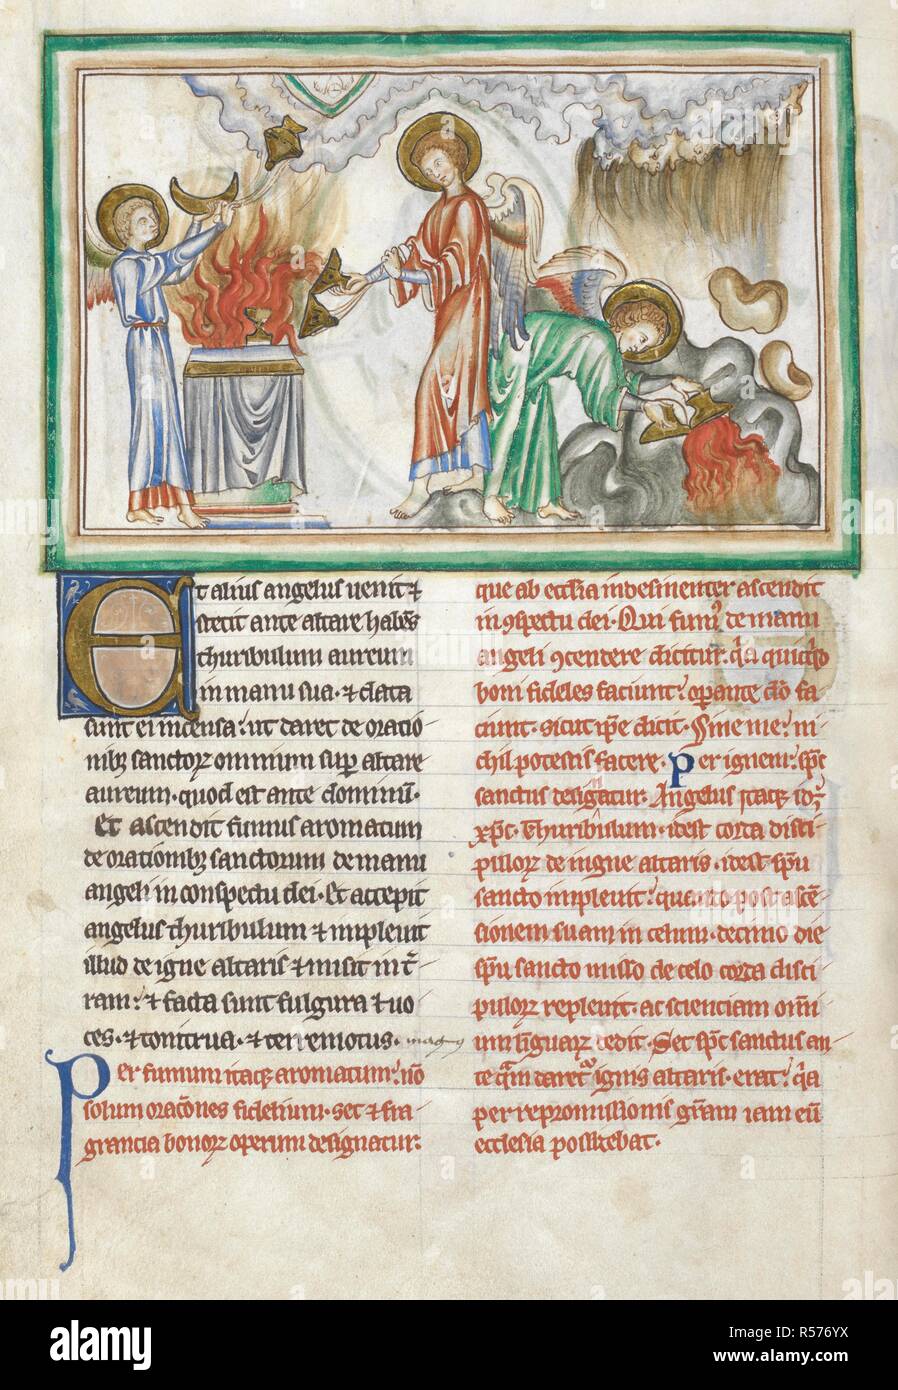 Et alius angelus venit &
stetit ante altare habēs
thuribulum aureum
in manu sua · & data
sunt ei incensa : ut daret de oratio
nibꝫ sanctoꝝ omnium sup altare
aureum · quod est ante dominū ·
Et ascendit fumus aromatum
de orationibꝫ sanctorum de manu
angeli in conspectu dei · Et accepit
angelus thuribulum & implevit
illud de igne altaris & misit in t̄r
ram : & facta sunt fulgura & vo
ces · & tonitrua · & terremotus · magnꝰ
Per fumum itaqꝫ aromatum : nō
solum orac̄ones fidelium · set & fra
grancia bonoꝝ operum designatur :
que ab ecclīa indesinenter ascendit
in ꝯspectu dei · Qui fumꝰ de manu
angeli ꝯcendere dicitur : q̄a quicq̄d
boni fideles faciunt : opante dō fa
ciunt · sicut ip̄e dicit · Sine me : ni
chil potestis facere · Per ignem : sp̄c
sanctus designatur · Angelus itaqꝫ id ē
xp̄c · Thuribulum · idest corda disci
puloꝝ de igne altaris · idest sp̄u
sancto implevit : quando post ascē
sionem suam in celum · decimo die
sp̄u sancto misso de celo corda disci
puloꝝ replevit · ac scienciam om̄i
um linguaꝝ dedit · Set sp̄c sanctus an
te q̄m daret ignis altaris · erat : q̄a
per repromissionis gr̄am iam eū
ecclesia possidebat ·
alamy
alamy
Image ID: R576YX
www.alamy.com